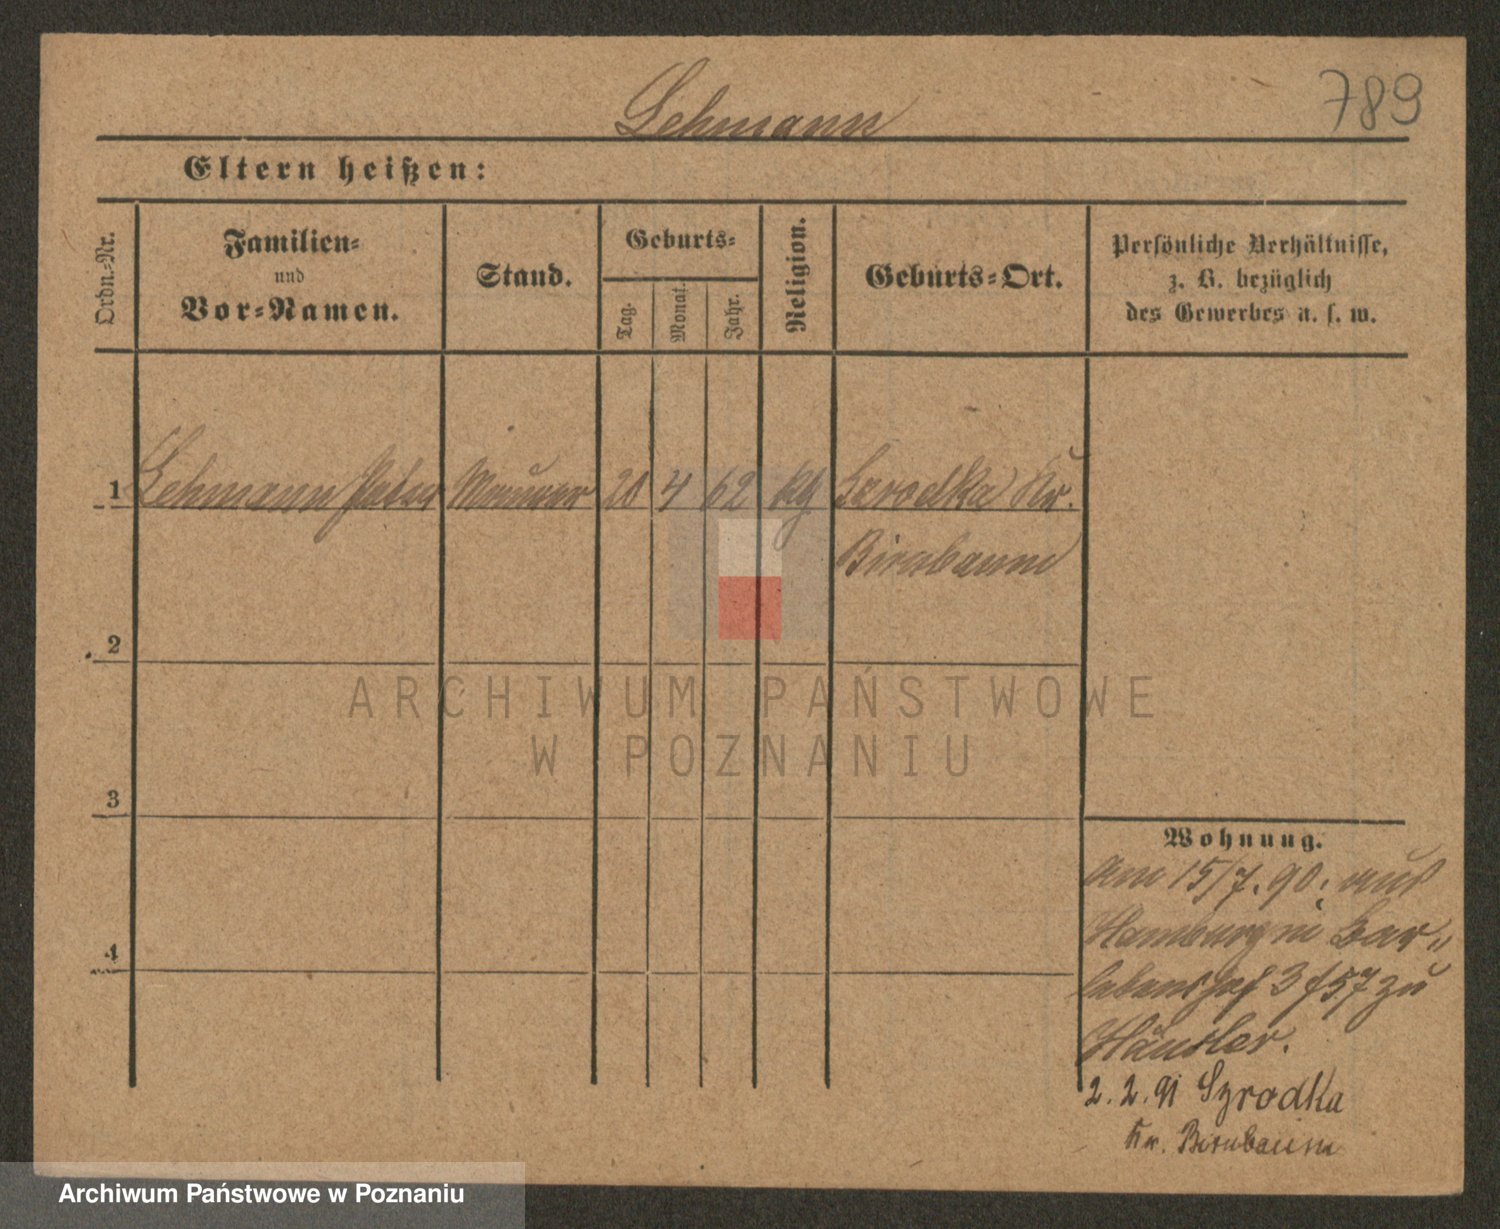 789
Lehmann
Eltern heißen:
Ordn.-Nr.
Familien-
und
Vor-Namen.
Stand.
Geburts-
Tag.
Monat.
Jahr.
Religion.
Geburts-Ort.
Persönliche Verhältnisse,
z. B. bezüglich
des Gewerbes u. s. w.
1 Lehmann Peter Maurer 20 4 62 kg Szrodka Kr.
Birnbaum
2
ARCHIWUM PAŃSTWOWE
W POZNANIU
3
Wohnung.
Am 15/7. 90. aus
Hamburg in Bar„
4
lebenshof 3 f 57 zu
Häusler.
2. 2. 91 Szrodka
Kr. Birnbaum
Archiwum Państwowe w Poznaniu